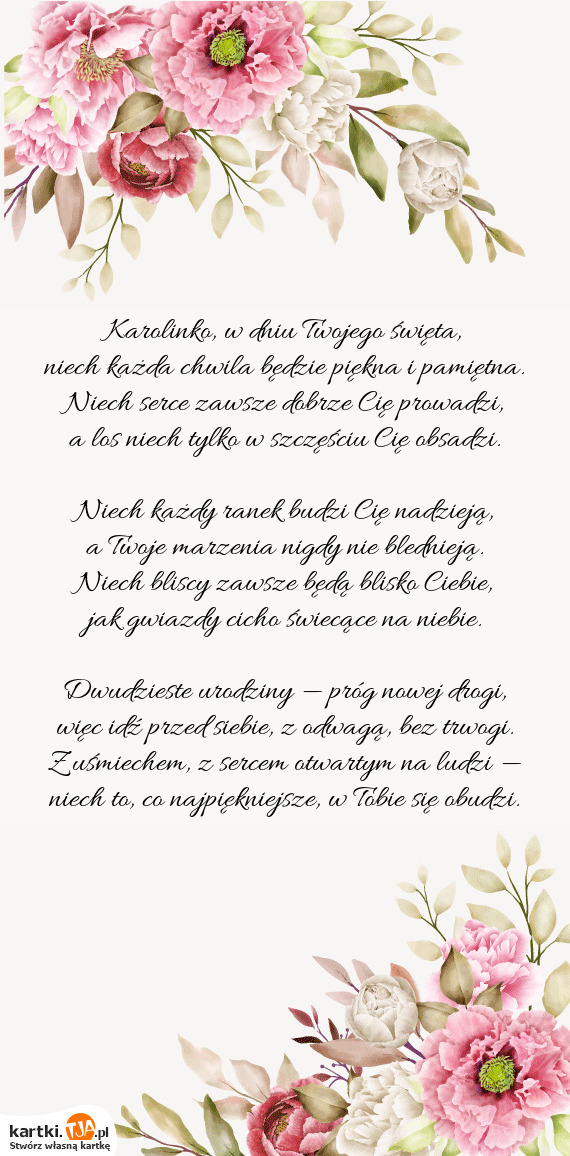 Karolinko, w dniu Twojego święta,
niech każda chwila będzie piękna i pamiętna.
Niech serce zawsze dobrze Cię prowadzi,
a los niech tylko w szczęściu Cię obsadzi.

Niech każdy ranek budzi Cię nadzieją,
a Twoje marzenia nigdy nie blednieją.
Niech bliscy zawsze będą blisko Ciebie,
jak gwiazdy cicho świecące na niebie.

Dwudzieste urodziny — próg nowej drogi,
więc idź przed siebie, z odwagą, bez trwogi.
Z uśmiechem, z sercem otwartym na ludzi —
niech to, co najpiękniejsze, w Tobie się obudzi.

kartki.TJA.pl
Stwórz własną kartkę